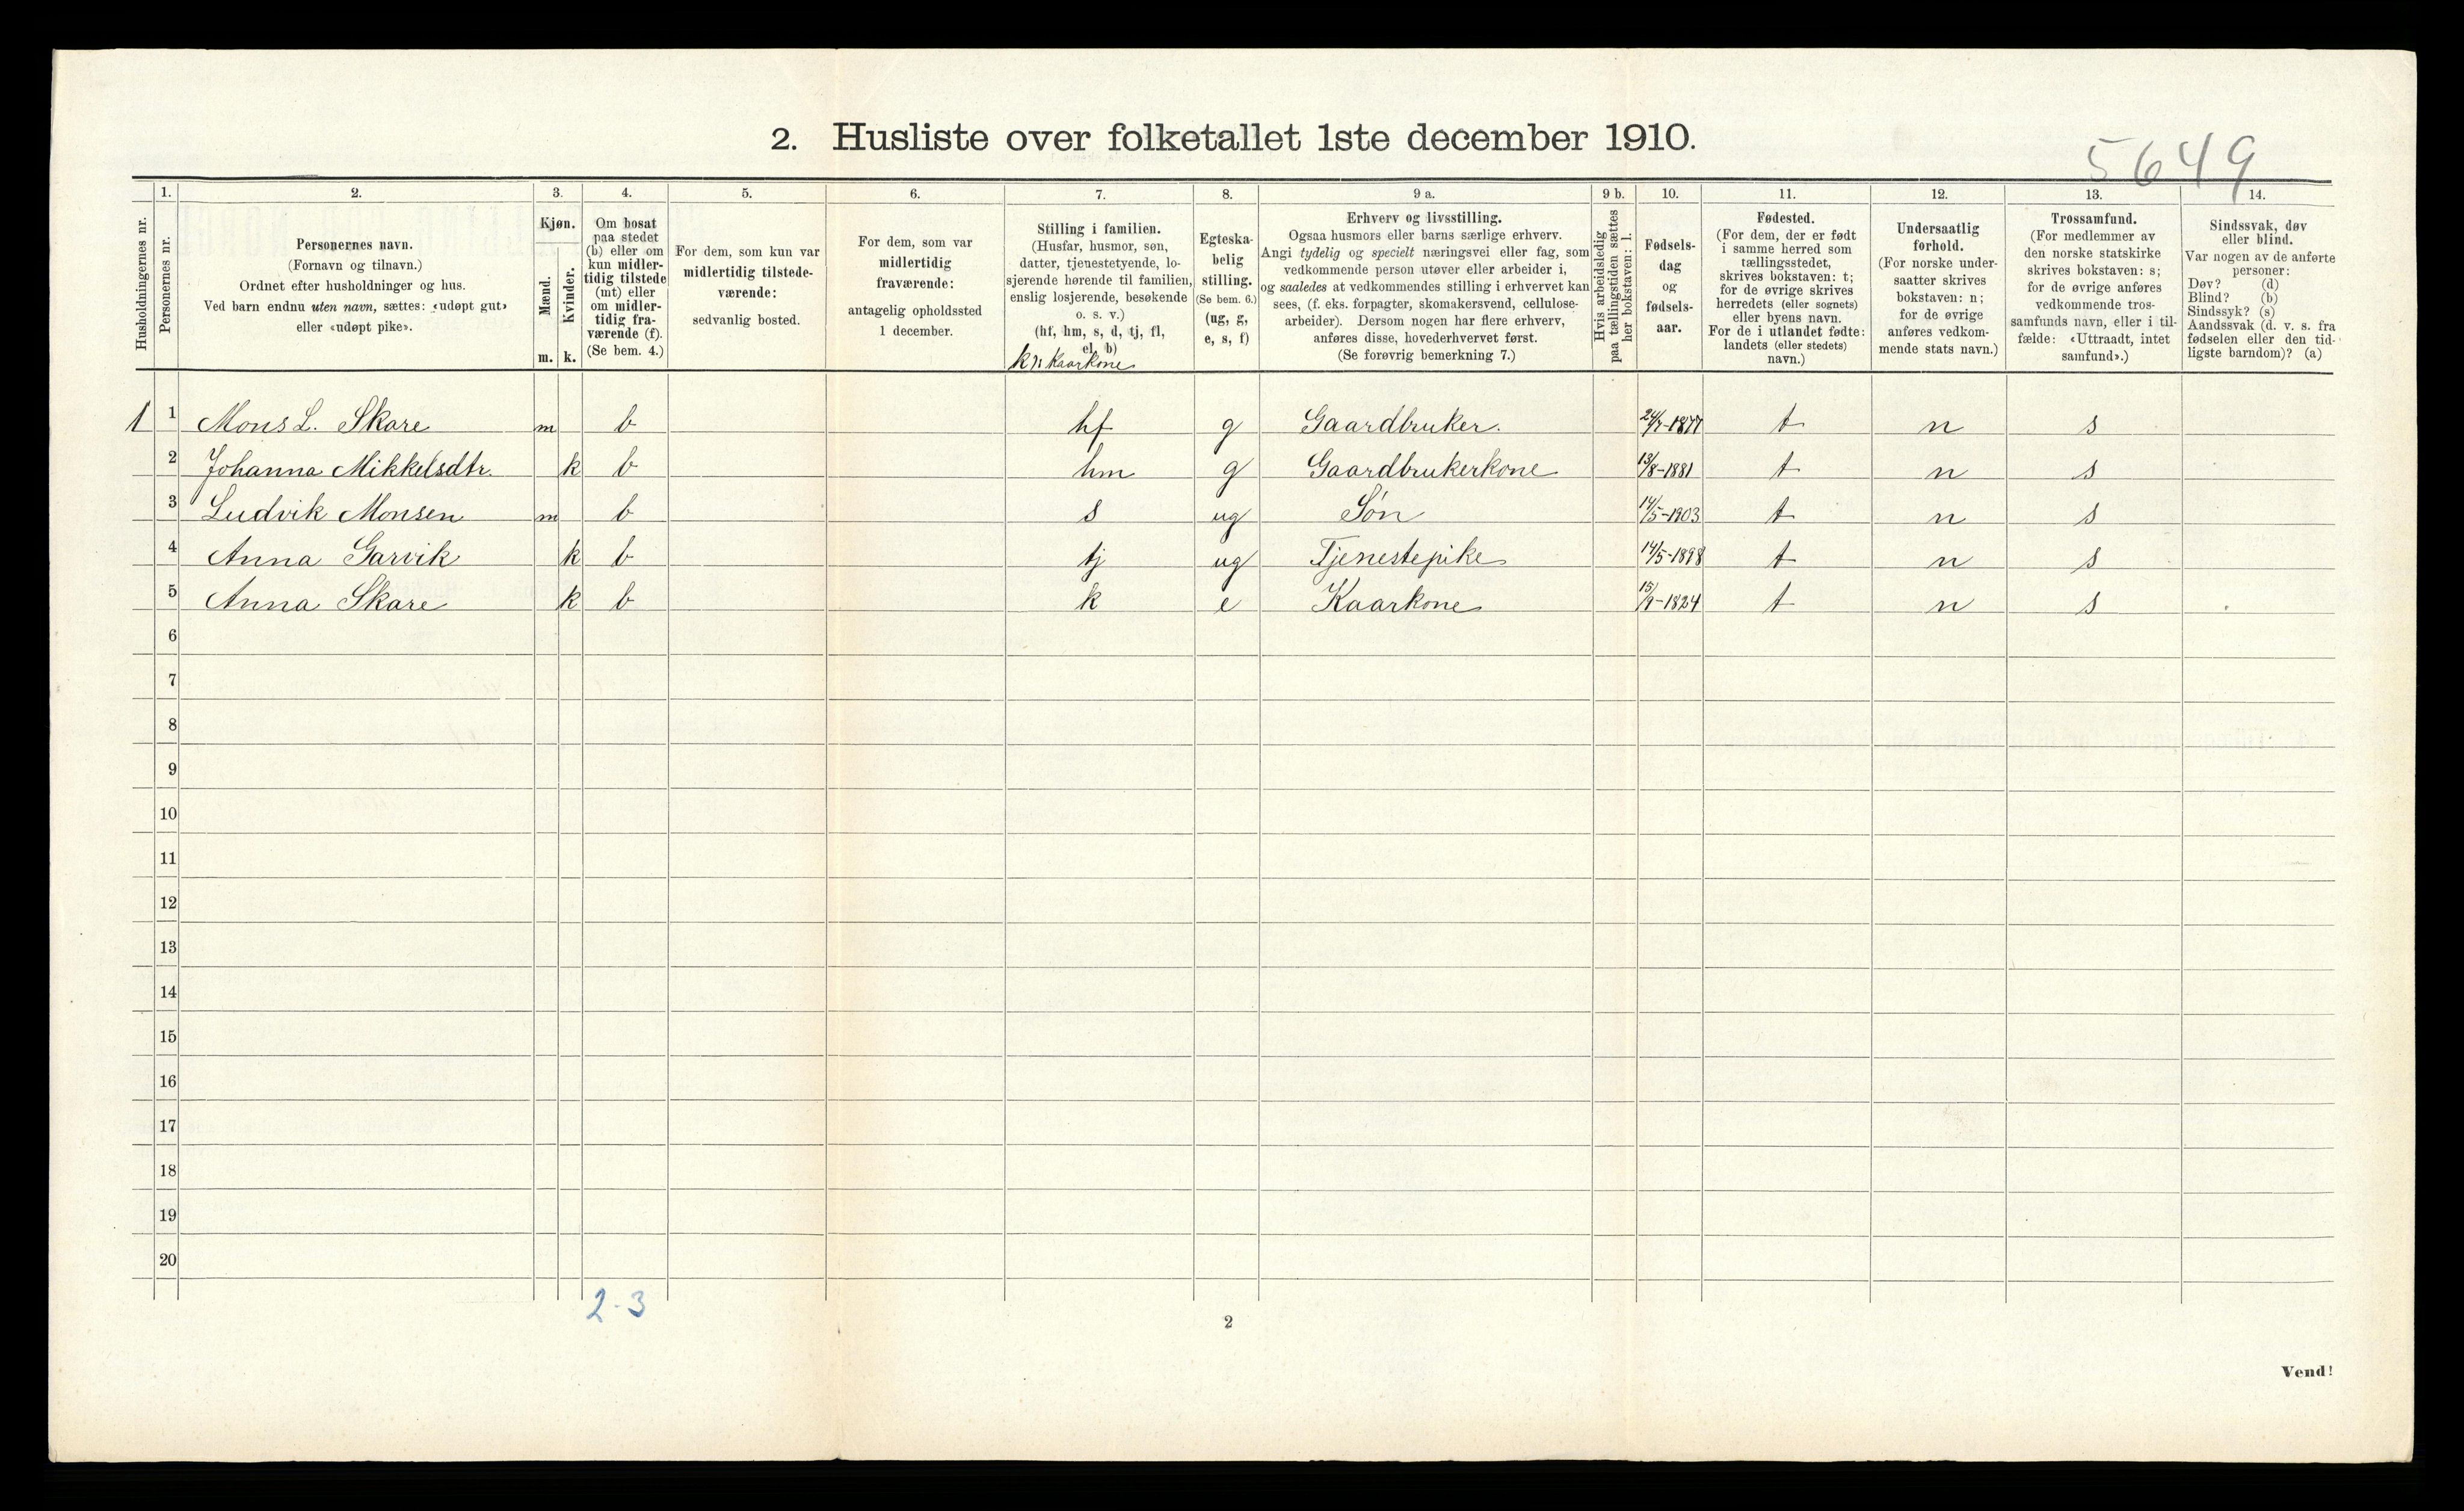 2. Husliste over folketallet 1ste december 1910.
5649
Husholdningernes nr.
1.
Personernes nr.
2.
Personernes navn.
(Fornavn og tilnavn.)
Ordnet efter husholdninger og hus.
Ved barn endnu uten navn, sættes: «udøpt gut»
eller «udøpt pike».
3.
Kjøn.
Mænd.
Kvinder.
m. k.
4.
Om bosat
paa stedet
(b) eller om
kun midler-
tidig tilstede
(mt) eller
om midler-
tidig fra-
værende (f).
(Se bem. 4.)
5.
For dem, som kun var
midlertidig tilstede-
værende:
sedvanlig bosted.
6.
For dem, som var
midlertidig
fraværende:
antagelig opholdssted
1 december.
7.
Stilling i familien.
(Husfar, husmor, søn,
datter, tjenestetyende, lo-
sjerende hørende til familien,
enslig losjerende, besøkende
o. s. v.)
(hf, hm, s, d, tj, fl,
el, b)
k n kaarkone
8.
Egteska-
belig
stilling.
(Se bem. 6.)
(ug, g,
e, s, f)
9 a.
Erhverv og livsstilling.
Ogsaa husmors eller barns særlige erhverv.
Angi tydelig og specielt næringsvei eller fag, som
vedkommende person utøver eller arbeider i,
og saaledes at vedkommendes stilling i erhvervet kan
sees, (f. eks. forpagter, skomakersvend, cellulose-
arbeider). Dersom nogen har flere erhverv,
anføres disse, hovederhvervet først.
(Se forøvrig bemerkning 7.)
9 b.
Hvis arbeidsledig
paa tællingstiden sættes
her bokstaven: l.
10.
Fødsels-
dag
og
fødsels-
aar.
11.
Fødested.
(For dem, der er født
i samme herred som
tællingsstedet,
skrives bokstaven: t;
for de øvrige skrives
herredets (eller sognets)
eller byens navn.
For de i utlandet fødte:
landets (eller stedets)
navn.)
12.
Undersaatlig
forhold.
(For norske under-
saatter skrives
bokstaven: n;
for de øvrige
anføres vedkom-
mende stats navn.)
13.
Trossamfund.
(For medlemmer av
den norske statskirke
skrives bokstaven: s;
for de øvrige anføres
vedkommende tros-
samfunds navn, eller i til-
fælde: «Uttraadt, intet
samfund».)
14.
Sindssvak, døv
eller blind.
Var nogen av de anførte
personer:
Døv? (d)
Blind? (b)
Sindssyk? (s)
Aandssvak (d. v. s. fra
fødselen eller den tid-
ligste barndom)? (a)
1 1 Mons L. Skare m b hf g Gaardbruker. 24/7-1877 t n s
2 Johanna Mikkelsdtr. k b hm g Gaardbrukerkone 13/8-1881 t n s
3 Ludvik Monsen m b s ug Søn 14/5-1903 t n s
4 Anna Garvik k b tj ug Tjenestepike 14/5-1898 t n s
5 Anna Skare k b k e Kaarkone 15/9-1824 t n s
6
7
8
9
10
11
12
13
14
15
16
17
18
19
20
2-3
2
Vend!